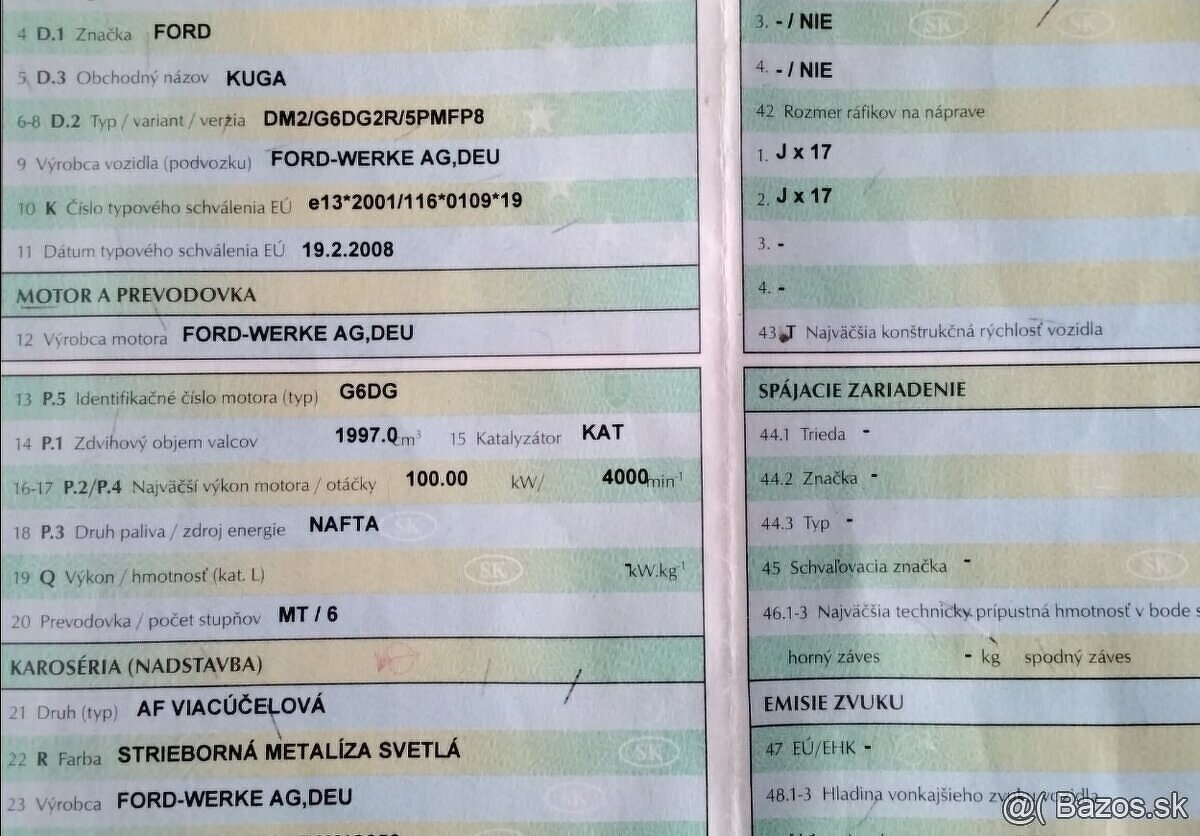 4 D.1 Značka FORD
5 D.3 Obchodný názov KUGA
6-8 D.2 Typ / variant / verzia DM2/G6DG2R/5PMFP8
9 Výrobca vozidla (podvozku) FORD-WERKE AG,DEU
10 K Číslo typového schválenia EÚ e13*2001/116*0109*19
11 Dátum typového schválenia EÚ 19.2.2008
MOTOR A PREVODOVKA
12 Výrobca motora FORD-WERKE AG,DEU
13 P.5 Identifikačné číslo motora (typ) G6DG
14 P.1 Zdvihový objem valcov 1997.0 cm³ 15 Katalyzátor KAT
16-17 P.2/P.4 Najväčší výkon motora / otáčky 100.00 kW/ 4000 min⁻¹
18 P.3 Druh paliva / zdroj energie NAFTA SK
19 Q Výkon / hmotnosť (kat. L) SK - kW.kg⁻¹
20 Prevodovka / počet stupňov MT / 6
KAROSÉRIA (NADSTAVBA)
21 Druh (typ) AF VIACÚČELOVÁ
22 R Farba STRIEBORNÁ METALÍZA SVETLÁ SK
23 Výrobca FORD-WERKE AG,DEU
3. - / NIE SK SK
4. - / NIE
42 Rozmer ráfikov na náprave
1. J x 17
2. J x 17
3. -
4. -
43 T Najväčšia konštrukčná rýchlosť vozidla
SPÁJACIE ZARIADENIE
44.1 Trieda -
44.2 Značka -
44.3 Typ -
45 Schvaľovacia značka - SK
46.1-3 Najväčšia technicky prípustná hmotnosť v bode s
horný záves - kg spodný záves
EMISIE ZVUKU
47 EÚ/EHK -
48.1-3 Hladina vonkajšieho zvuku vozidla
@( Bazos.sk